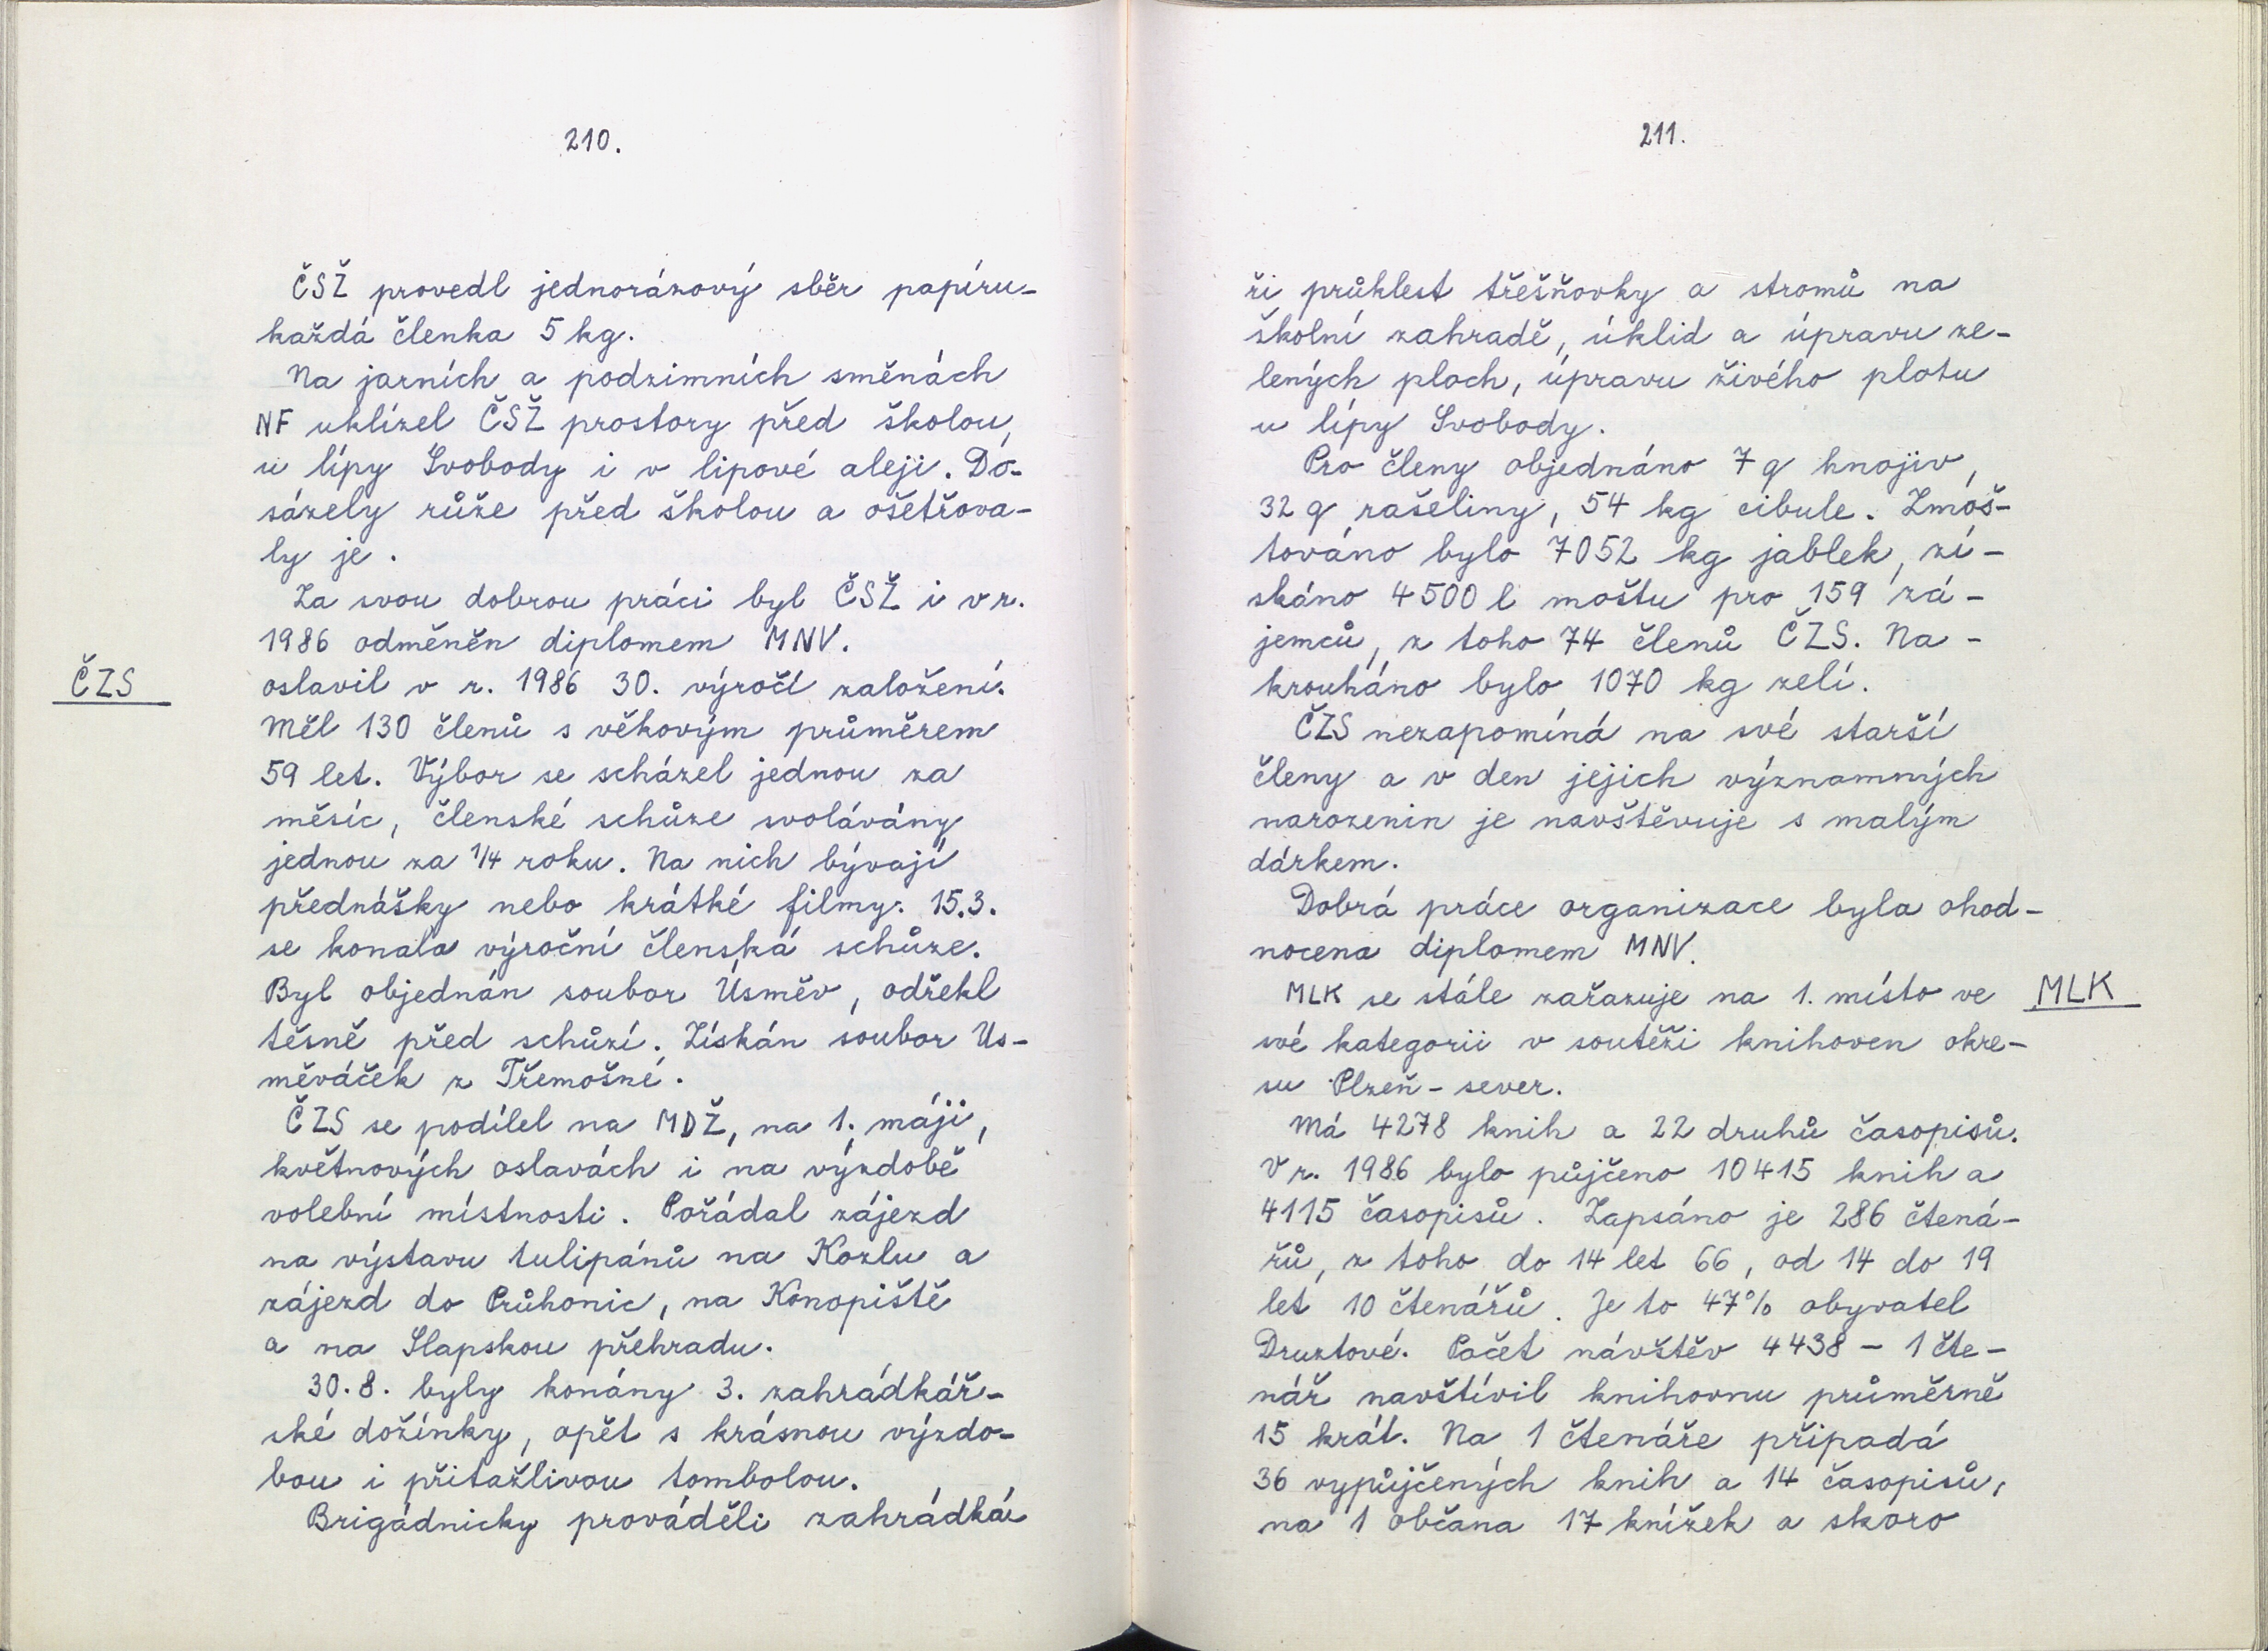 210.
ČSŽ provedl jednorázový sběr papíru-
každá členka 5 kg.
Na jarních a podzimních směnách
NF uklízel ČSŽ prostory před školou,
u lípy Svobody i v lipové aleji. Do-
sázely růže před školou a ošetřova-
ly je.
Za svou dobrou práci byl ČSŽ i v r.
1986 odměněn diplomem MNV.
ČZS
oslavil v r. 1986 30. výročí založení.
Měl 130 členů s věkovým průměrem
59 let. Výbor se scházel jednou za
měsíc, členské schůze svolávány
jednou za 1/4 roku. Na nich bývají
přednášky nebo krátké filmy. 15.3.
se konala výroční členská schůze.
Byl objednán soubor Úsměv, odřekl
těsně před schůzí. Získán soubor Us-
měváček z Třemošné.
ČZS se podílel na MDŽ, na 1. máji,
květnových oslavách i na výzdobě
volební místnosti. Pořádal zájezd
na výstavu tulipánů na Kozlu a
zájezd do Průhonic, na Konopiště
a na Slapskou přehradu.
30.8. byly konány 3. zahrádkář-
ské dožínky, opět s krásnou výzdo-
bou i přitažlivou tombolou.
Brigádnicky prováděli zahrádká-
211.
ři průklest třešňovky a stromů na
školní zahradě, úklid a úpravu ze-
lených ploch, úpravu živého plotu
u lípy Svobody.
Pro členy objednáno 7 q hnojiv,
32 q rašeliny, 54 kg cibule. Zmoš-
továno bylo 7052 kg jablek, zí-
skáno 4500 l moštu pro 159 zá-
jemců, z toho 74 členů ČZS. Na-
krouháno bylo 1070 kg zelí.
ČZS nezapomíná na své starší
členy a v den jejich významných
narozenin je navštěvuje s malým
dárkem.
Dobrá práce organizace byla ohod-
nocena diplomem MNV.
MLK se stále zařazuje na 1. místo ve
MLK
své kategorii v soutěži knihoven okre-
su Plzeň - sever.
Má 4278 knih a 22 druhů časopisů.
V r. 1986 bylo půjčeno 10415 knih a
4115 časopisů. Zapsáno je 286 čtená-
řů, z toho do 14 let 66, od 14 do 19
let 10 čtenářů. Je to 47% obyvatel
Druztové. Počet návštěv 4438 - 1 čte-
nář navštívil knihovnu průměrně
15 krát. Na 1 čtenáře připadá
36 vypůjčených knih a 14 časopisů,
na 1 občana 17 knížek a skoro